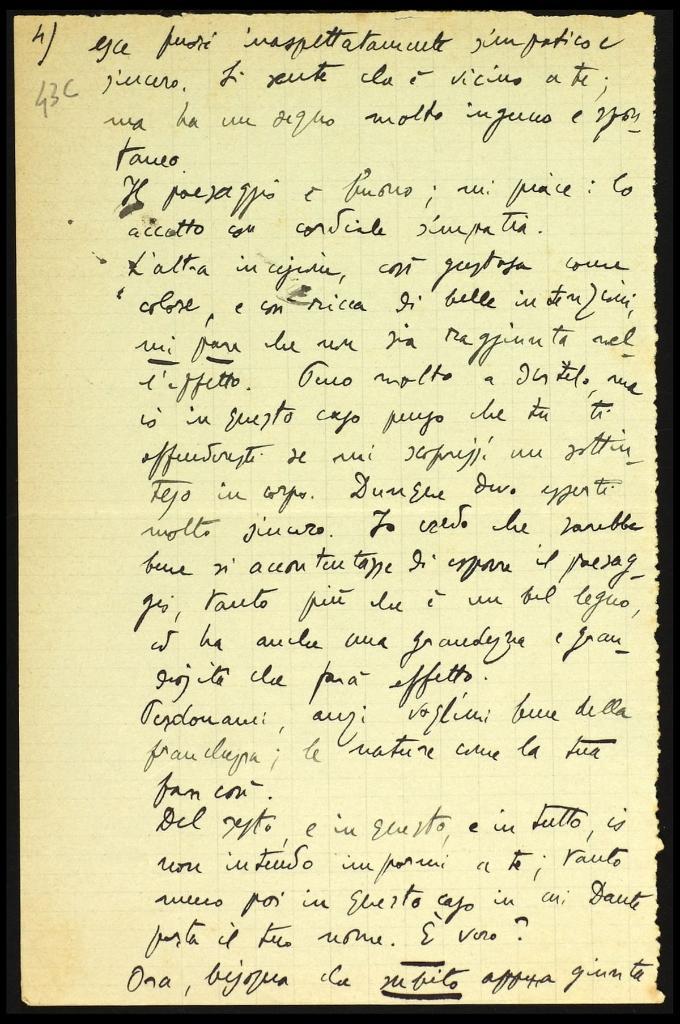 4)
43c
esce fuori inaspettatamente simpatico e
sincero. Si sente che è vicino a te;
ma ha un segno molto ingenuo e spon-
taneo.
Il paesaggio è buono; mi piace: lo
accetto con cordiale simpatia.
L'altra incisione, così gustosa come
colore, e così ricca di belle intenzioni,
mi pare che non sia raggiunta nel-
l'effetto. Tengo molto a dirtelo, ma
io in questo caso penso che tu ti
offenderesti se mi scoprissi un sottin-
teso in corpo. Dunque devo esserti
molto sincero. Io credo che sarebbe
bene si accontentasse di esporre il paesag-
gio, tanto più che è un bel legno,
ed ha anche una grandezza e gran-
diosità che farà effetto.
Perdonami, anzi voglimi bene della
franchezza; le nature come la tua
fan così.
Del resto, e in questo, e in tutto, io
non intendo impormi a te; tanto
meno poi in questo caso in cui Dante
porta il tuo nome. È vero?
Ora, bisogna che subito appena giunta